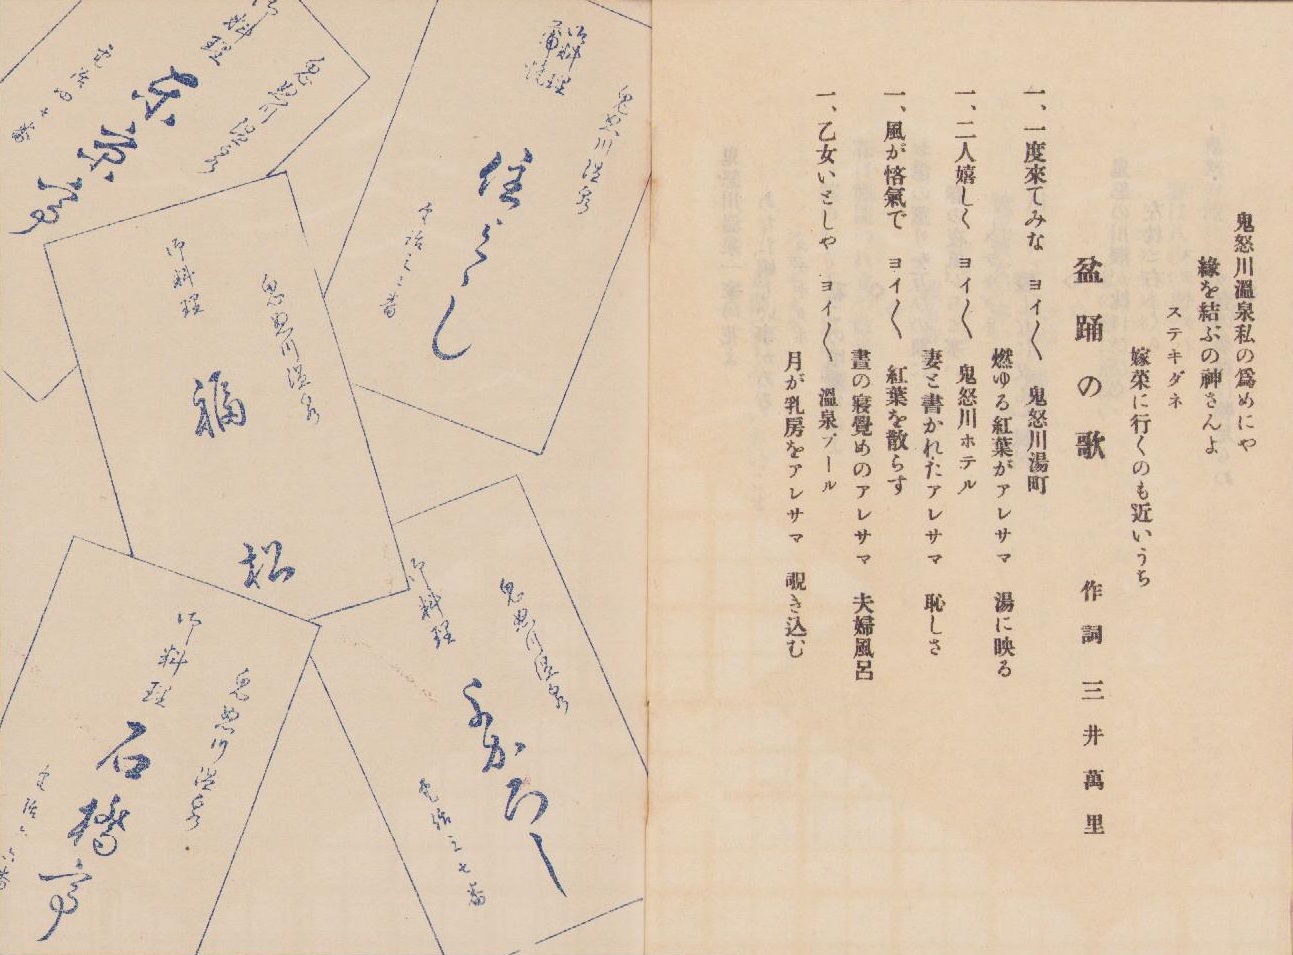 鬼怒川溫泉私の爲めにや
緣を結ぶの神さんよ
ステキダネ
嫁菜に行くのも近いうち
盆踊の歌 作詞 三井萬里
一、一度來てみな ヨイ〱 鬼怒川湯町
燃ゆる紅葉がアレサマ 湯に映る
一、二人嬉しく ヨイ〱 鬼怒川ホテル
妻と書かれたアレサマ 恥しさ
一、風が悋氣で ヨイ〱 紅葉を散らす
晝の寢覺めのアレサマ 夫婦風呂
一、乙女いとしや ヨイ〱 溫泉プール
月が乳房をアレサマ 覗き込む
鬼怒川温泉
御料理
蒲燒
住よし
電話三三番
鬼怒川温泉
御料理
電話四七番
鬼怒川温泉
御料理
福松
鬼怒川温泉
御料理
電話三七番
鬼怒川温泉
御料理
石橋亭